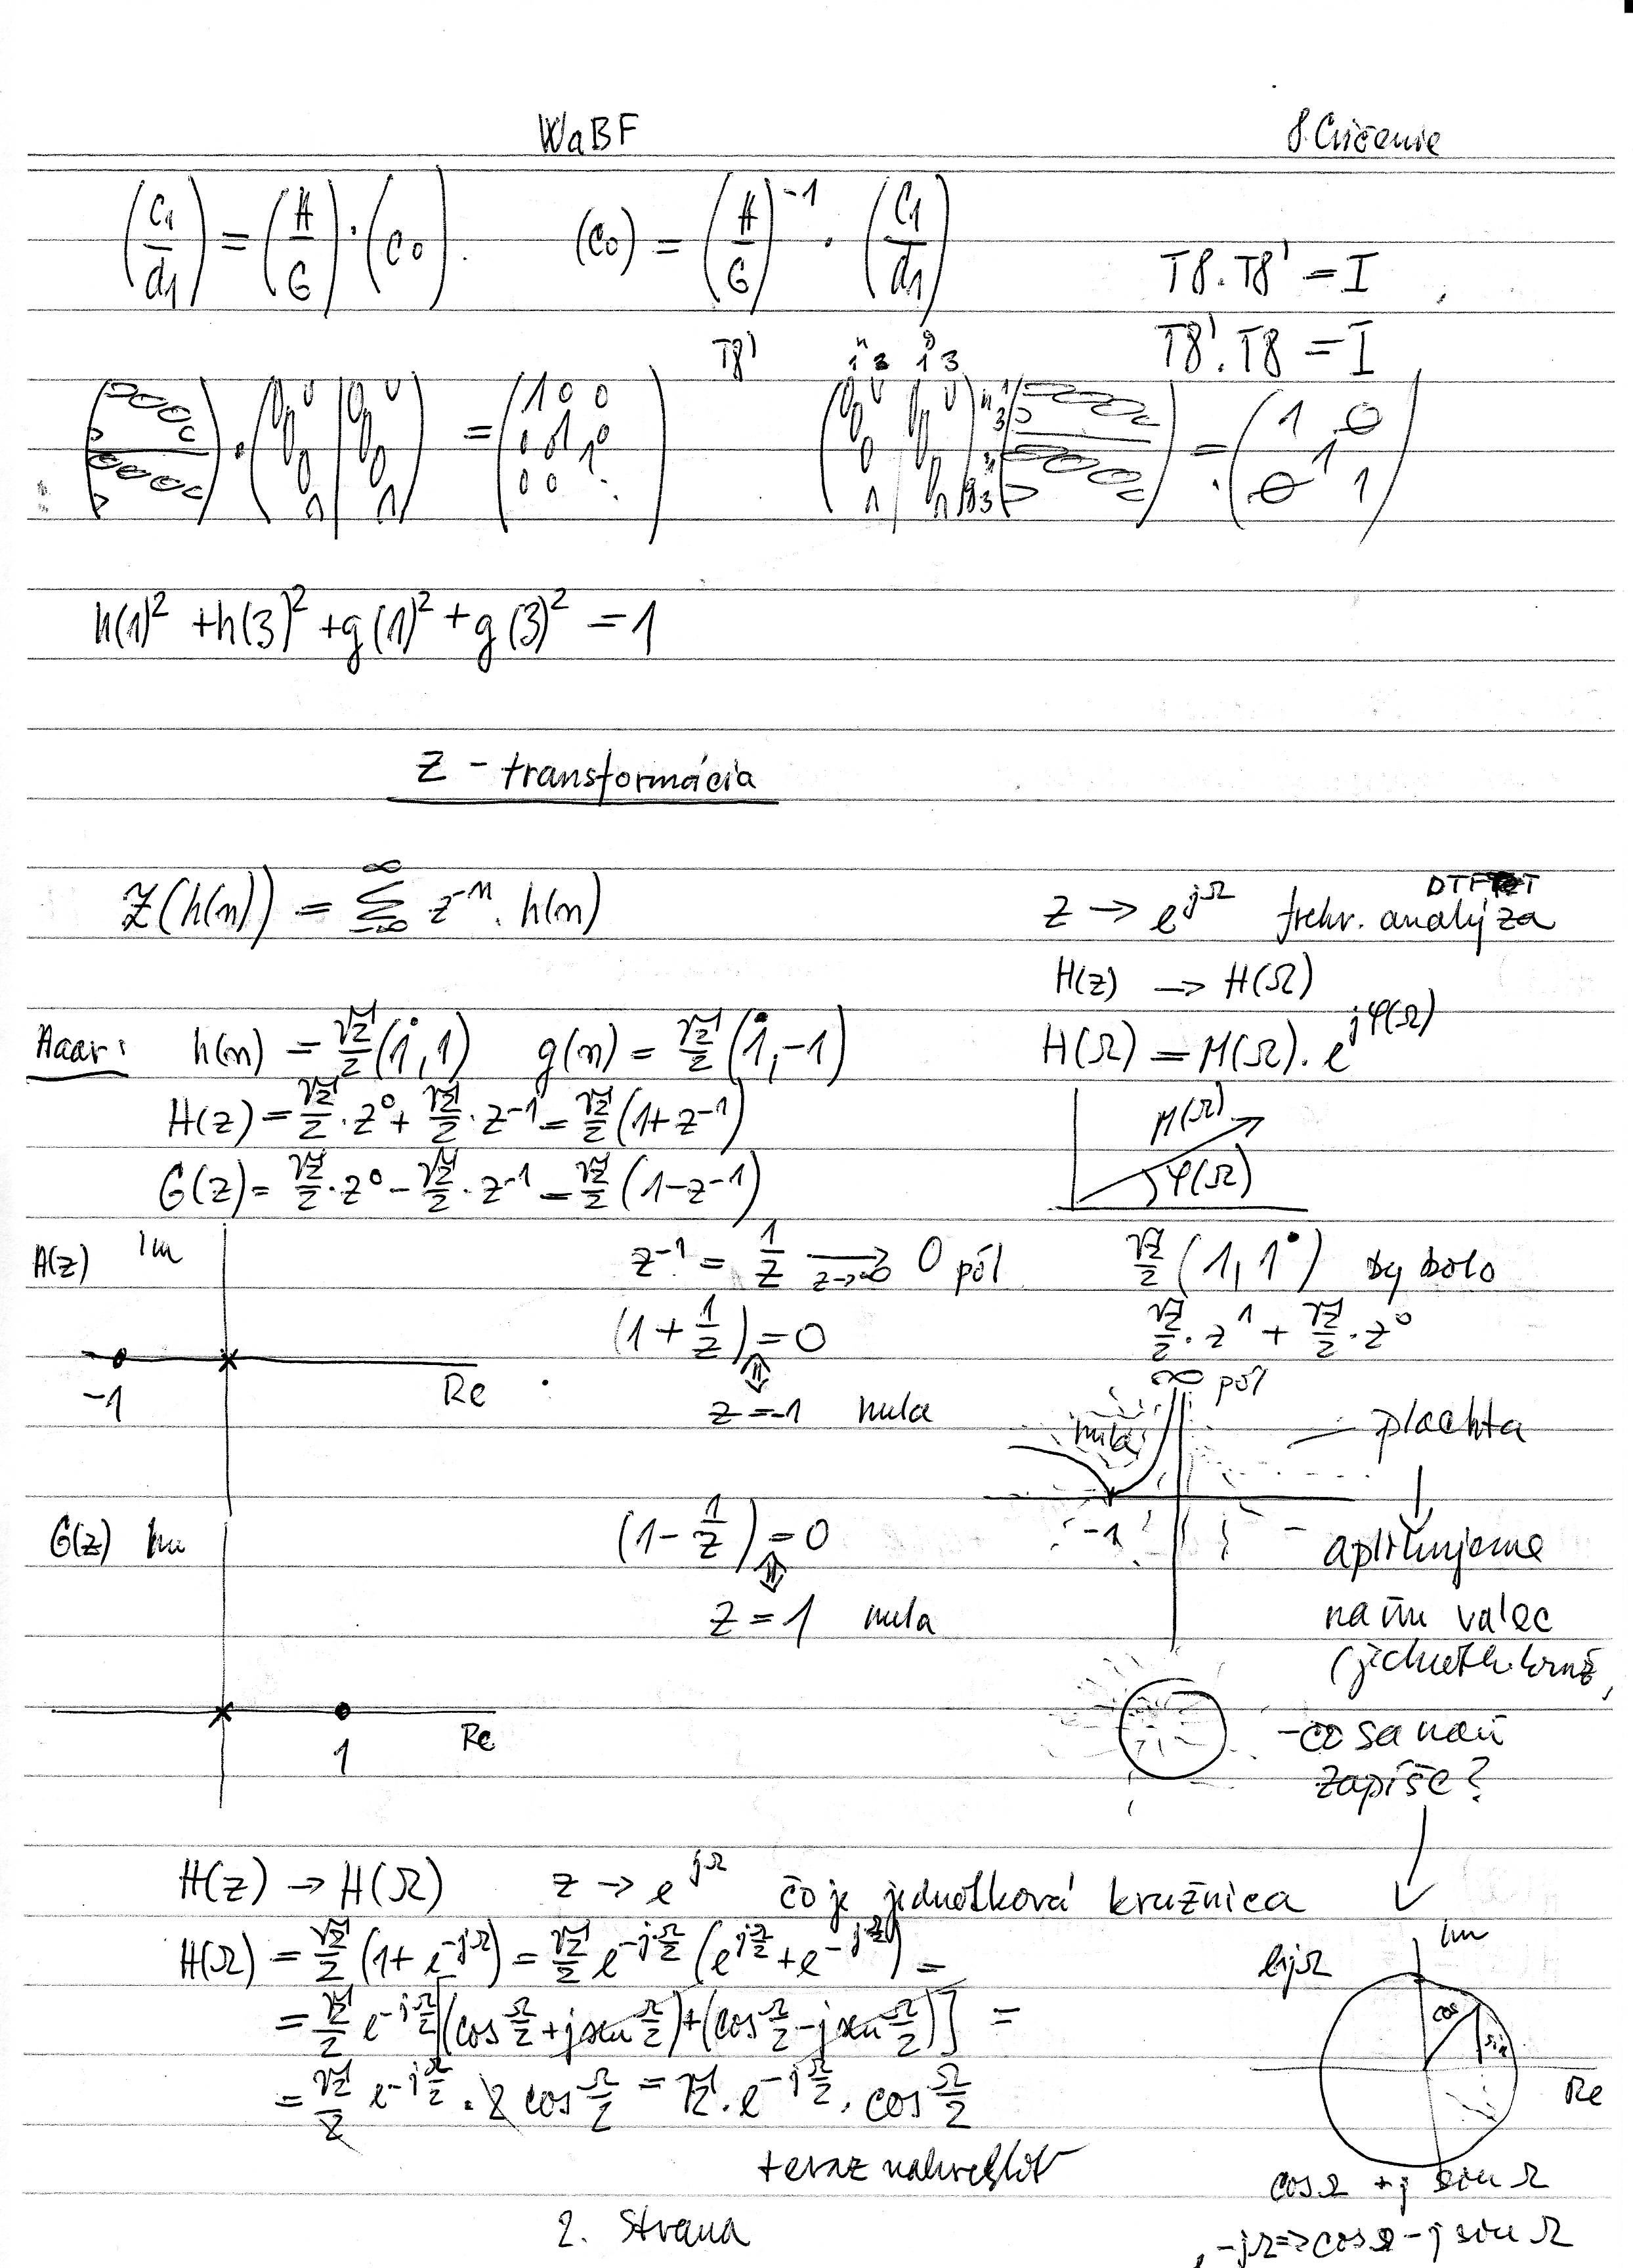 WaBF 8. Cvičenie
(c1/d1) = (H/G) · (c0). (c0) = (H/G)^-1 · (c1/d1)
T8.T8' = I
T8'.T8 = I
T8'
h(1)² + h(3)² + g(1)² + g(3)² = 1
Z - transformácia
Z(h(n)) = ∑_{-∞}^{∞} z^-n . h(n)
z → e^jΩ frekv. analýza
H(z) → H(Ω)
H(Ω) = M(Ω) . e^jφ(Ω)
M(Ω)
φ(Ω)
Haar: h(n) = √2/2 (1, 1) g(n) = √2/2 (1, -1)
H(z) = √2/2 · z^0 + √2/2 · z^-1 = √2/2 (1 + z^-1)
G(z) = √2/2 · z^0 - √2/2 · z^-1 = √2/2 (1 - z^-1)
H(z) Im
-1 Re
z^-1 = 1/z → 0 pól
(1 + 1/z) = 0
⇕
z = -1 nula
√2/2 (1, 1) by bolo
√2/2 · z^1 + √2/2 · z^0
∞ pól
nula
-1
plachta
↓
aplikujeme
na ňu valec
- čo sa naň
zapíše?
G(z) Im
1 Re
(1 - 1/z) = 0
⇕
z = 1 nula
H(z) → H(Ω) z → e^jΩ čo je jednotková kružnica
H(Ω) = √2/2 (1 + e^-jΩ) = √2/2 e^-jΩ/2 (e^jΩ/2 + e^-jΩ/2) =
= √2/2 e^-jΩ/2 [(cos Ω/2 + j sin Ω/2) + (cos Ω/2 - j sin Ω/2)] =
= √2/2 e^-jΩ/2 . 2 cos Ω/2 = √2 . e^-jΩ/2 . cos Ω/2
e^jΩ
Im
cos
sin
Re
cos Ω + j sin Ω
-jΩ => cos Ω - j sin Ω
teraz nakresliť
2. strana